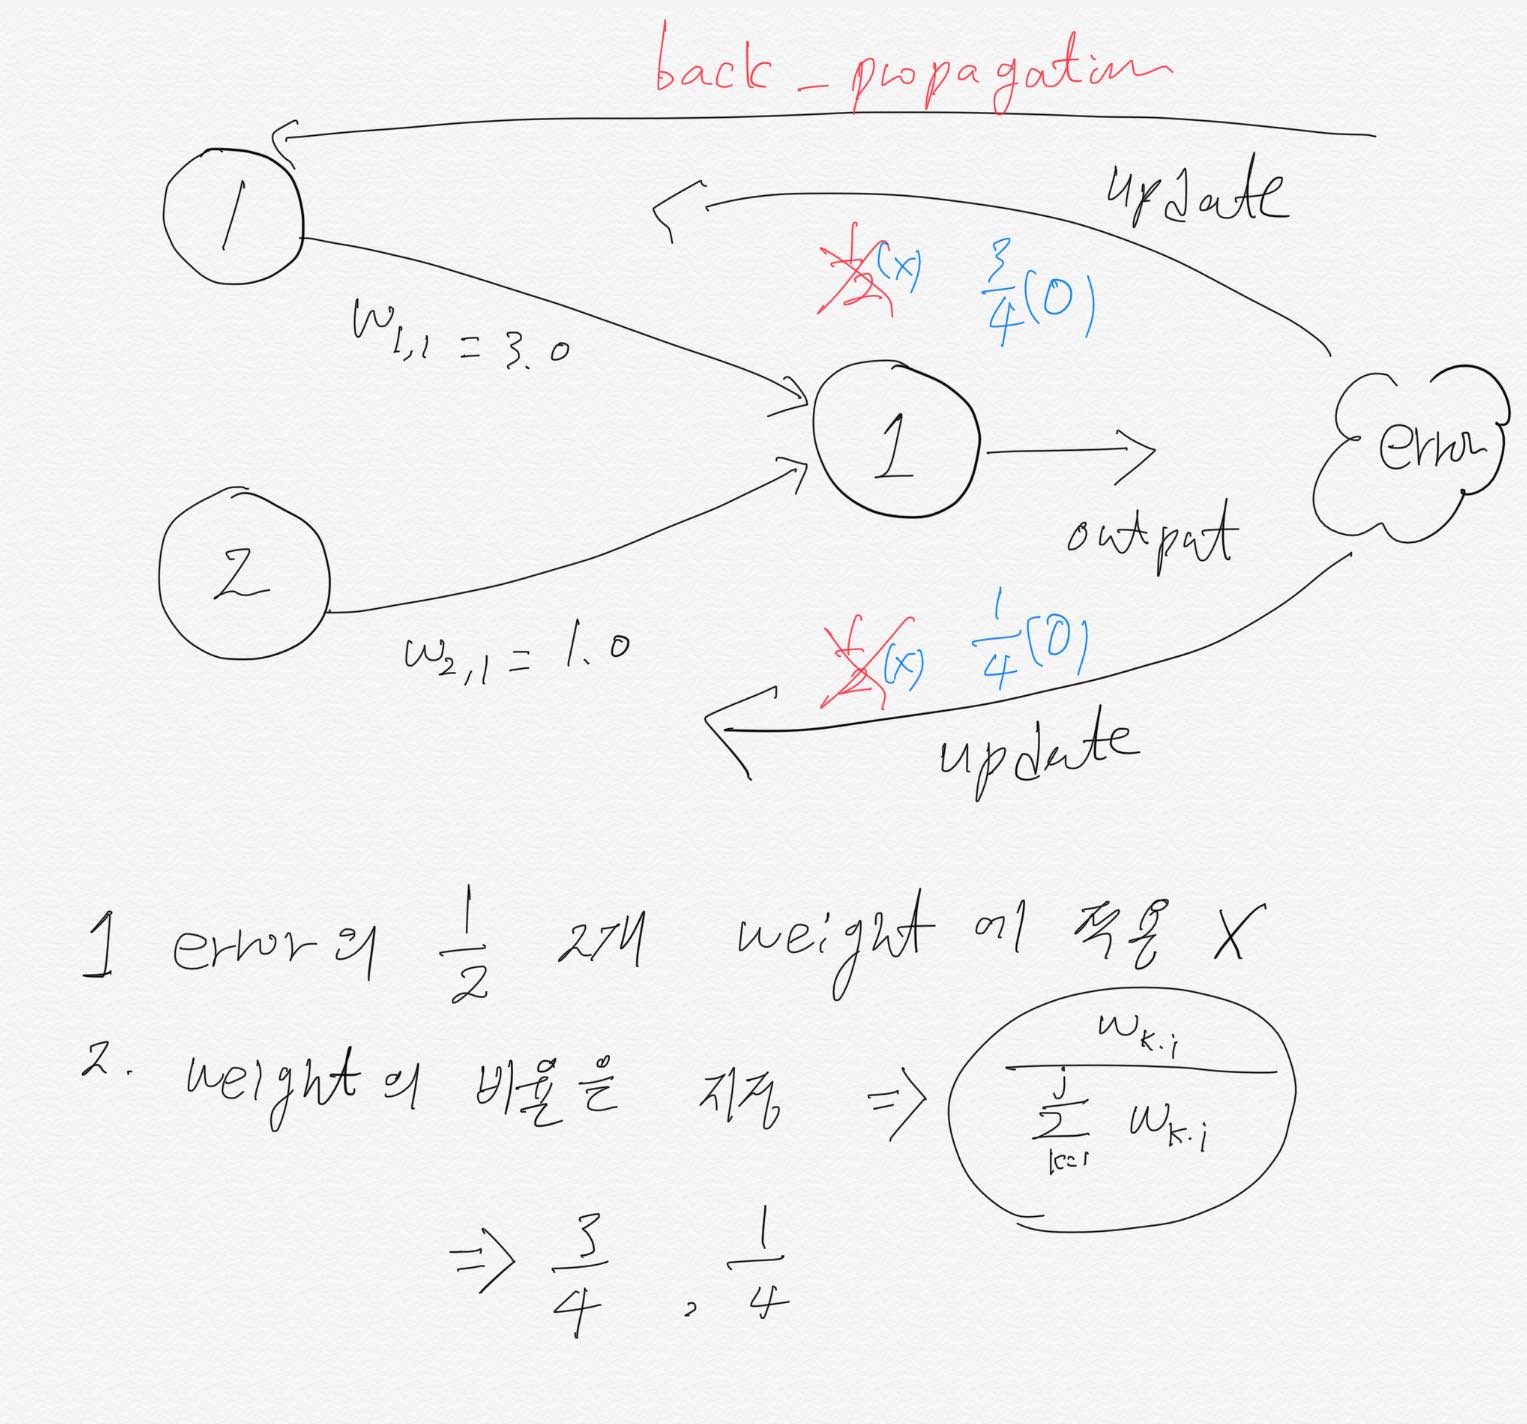 back_propagation
update
1
1/2 (x) 3/4 (O)
w1,1 = 3.0
1
error
output
2
w2,1 = 1.0
1/2 (x) 1/4 (O)
update
1 error의 1/2 2개 weight에 적용 X
2. weight의 비율을 지정 => wk.j / Σ(k=1, j) wk.j
=> 3/4 , 1/4